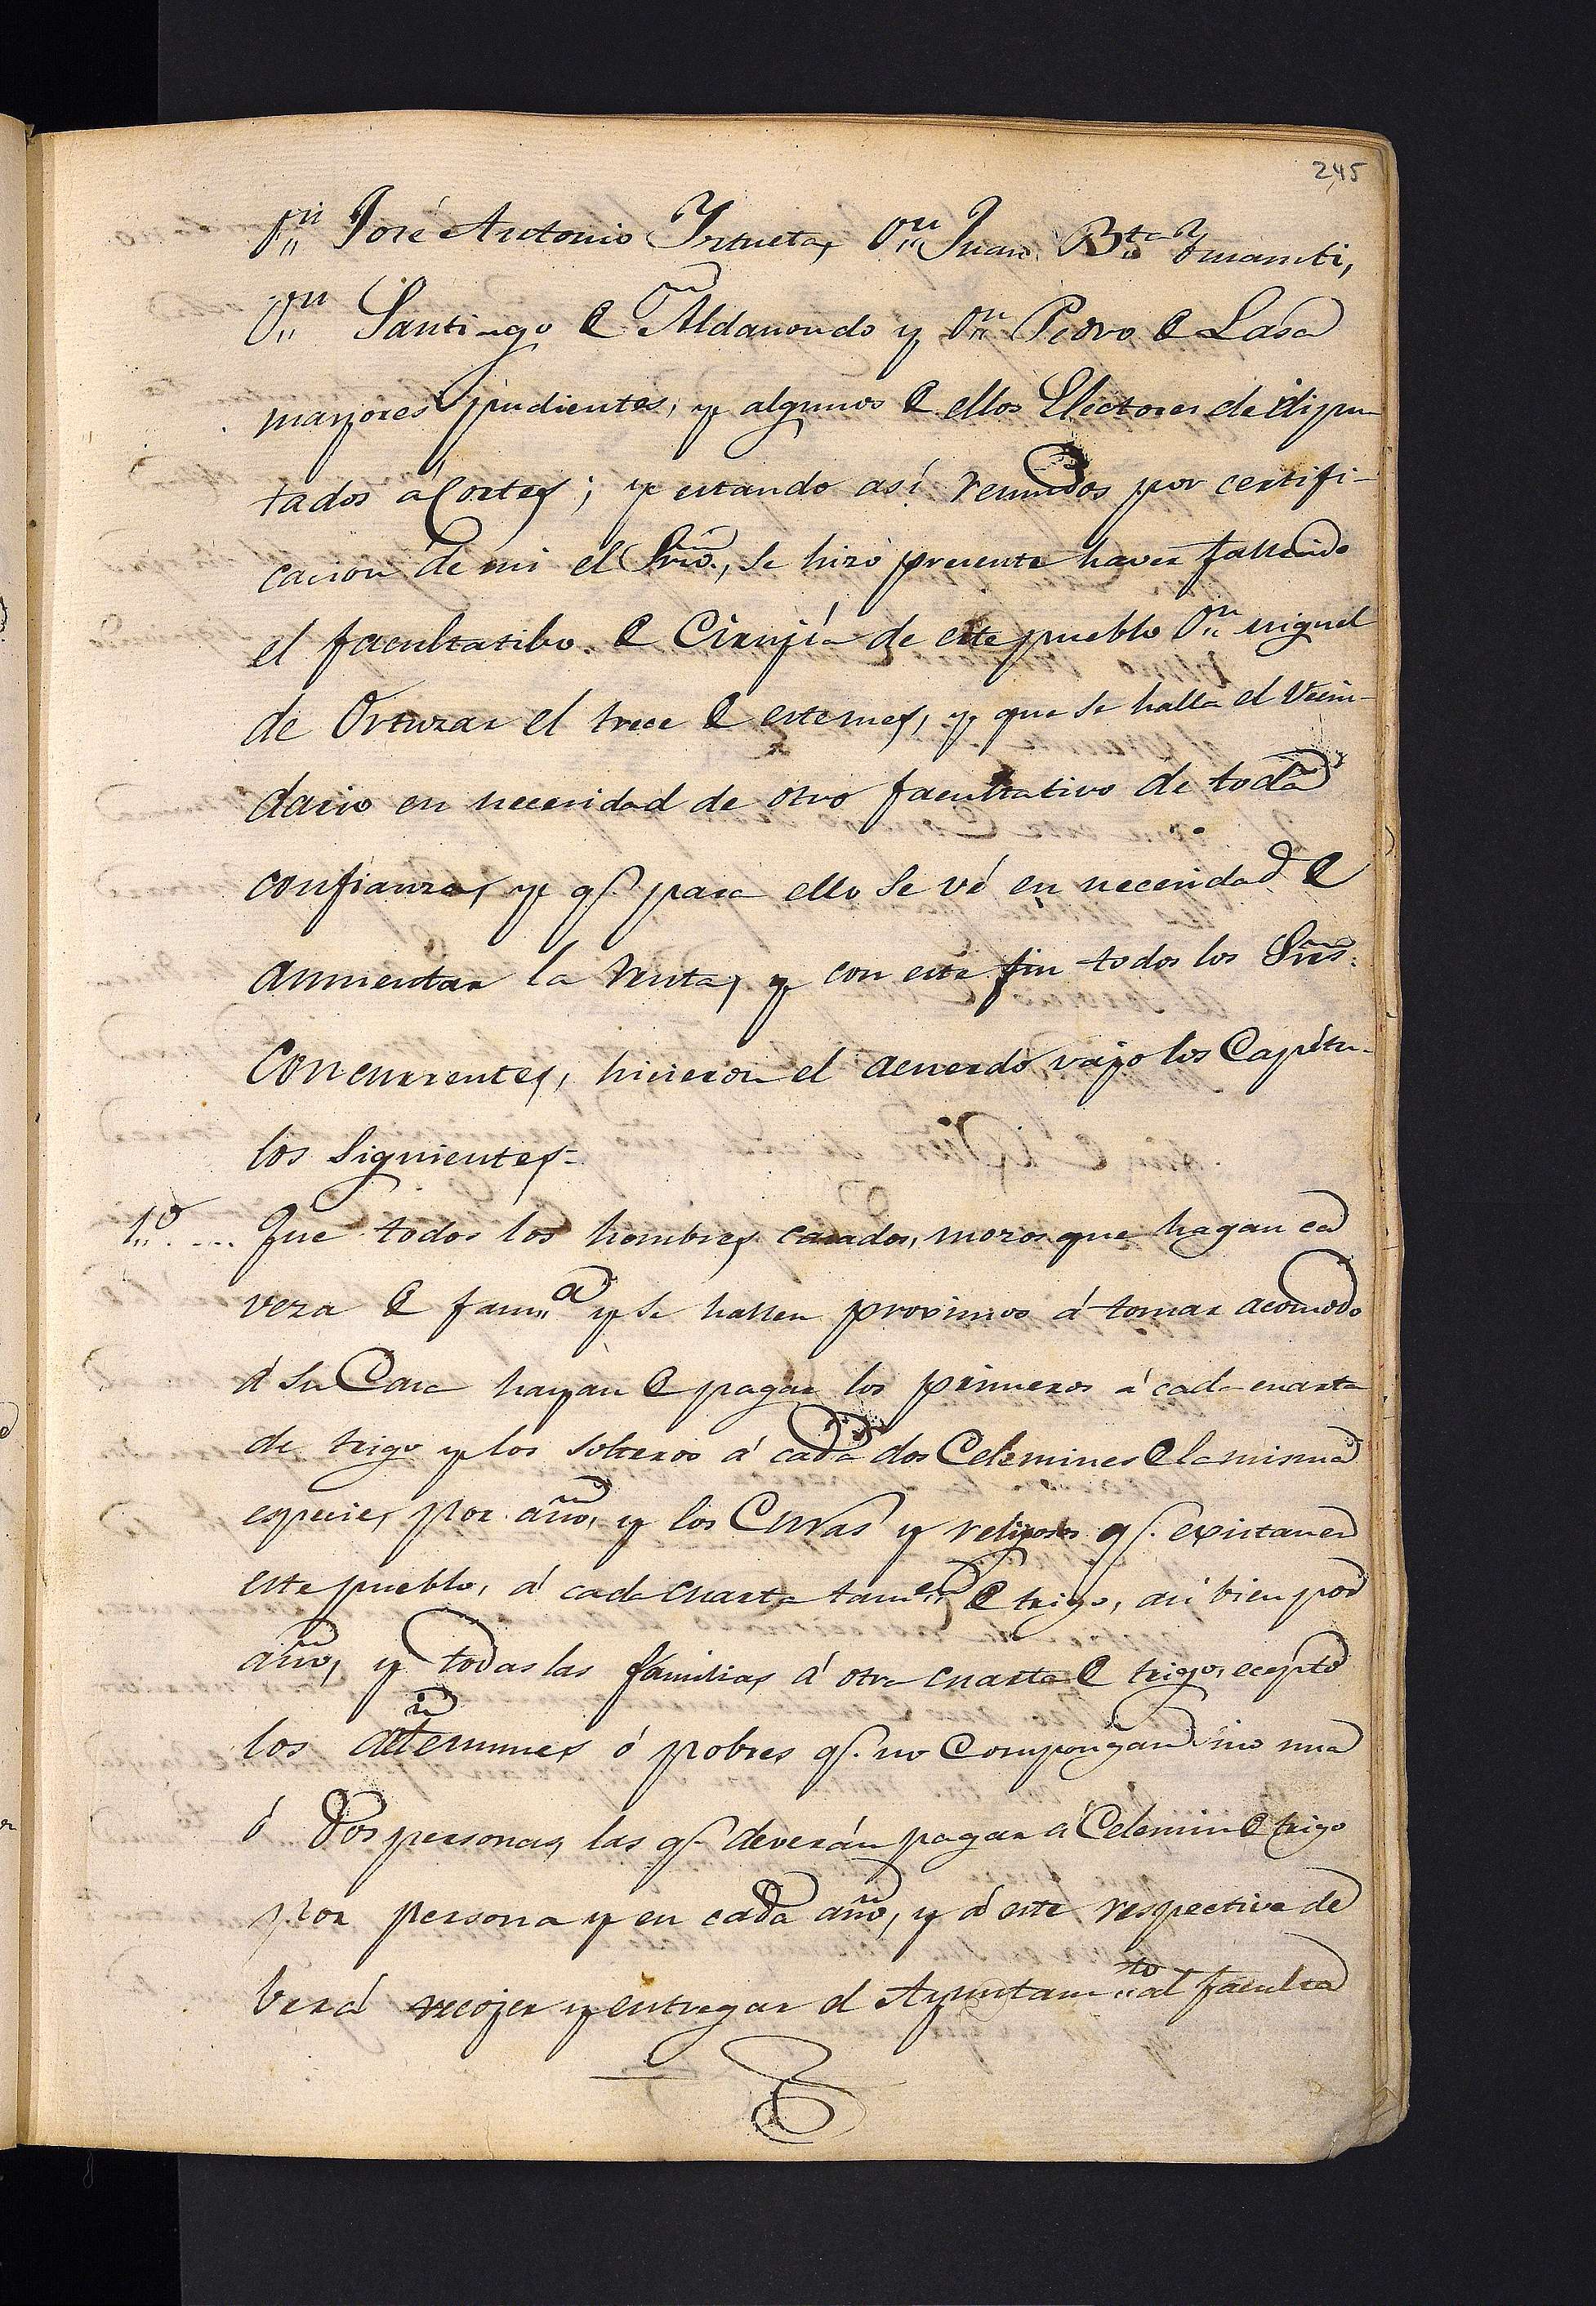 245
Dn. José Antonio Yrzueta, Dn. Juan Bta.
Dn. Santiago de Aldanondo y Dn. Pedro de Lasa
mayores pudientes, y algunos de ellos Electores de dipu-
tados á Cortes; y estando así reunidos por certifi-
cacion de mi el Srio., se hizo presente haver fallecido
el facultatibo de Cirujía de este pueblo Dn. Miguel
de Ortuzar el trece de este mes, y que se halla el Vecin-
dario en necesidad de otro facultativo de toda
confianza, y q.e para ello se vé en necesidad de
aumentar la renta, y con este fin todos los Sres.
Concurrentes, hicieron el acuerdo vajo los Capítu-
los Siguientes=
1.o .... Que todos los hombres casados, mozos que hagan ca
veza de fam.a y se hallen procsimos á tomar acomodo
á su Casa hayan de pagar los primeros á cada cuarta
de trigo y los solteros á cada dos Celemines de la misma
especie, por año, y los Curas y religiosos q.e existan en
este pueblo, á cada cuarta tam.en de trigo, asi bien por
año, y todas las familias á otra cuarta de trigo, ecepto
los ó pobres q.e no Compongan sino una
ó Dos personas, las q.e deverán pagar á Celemin de trigo
por persona y en cada año, y á este respective de
berá recojer y entregar el Ayuntam.to al faculta